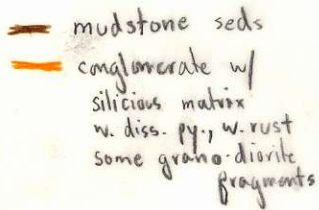 mudstone seds
conglomerate w/
silicious matrix
w. diss. py., w. rust
some grano-diorite
fragments